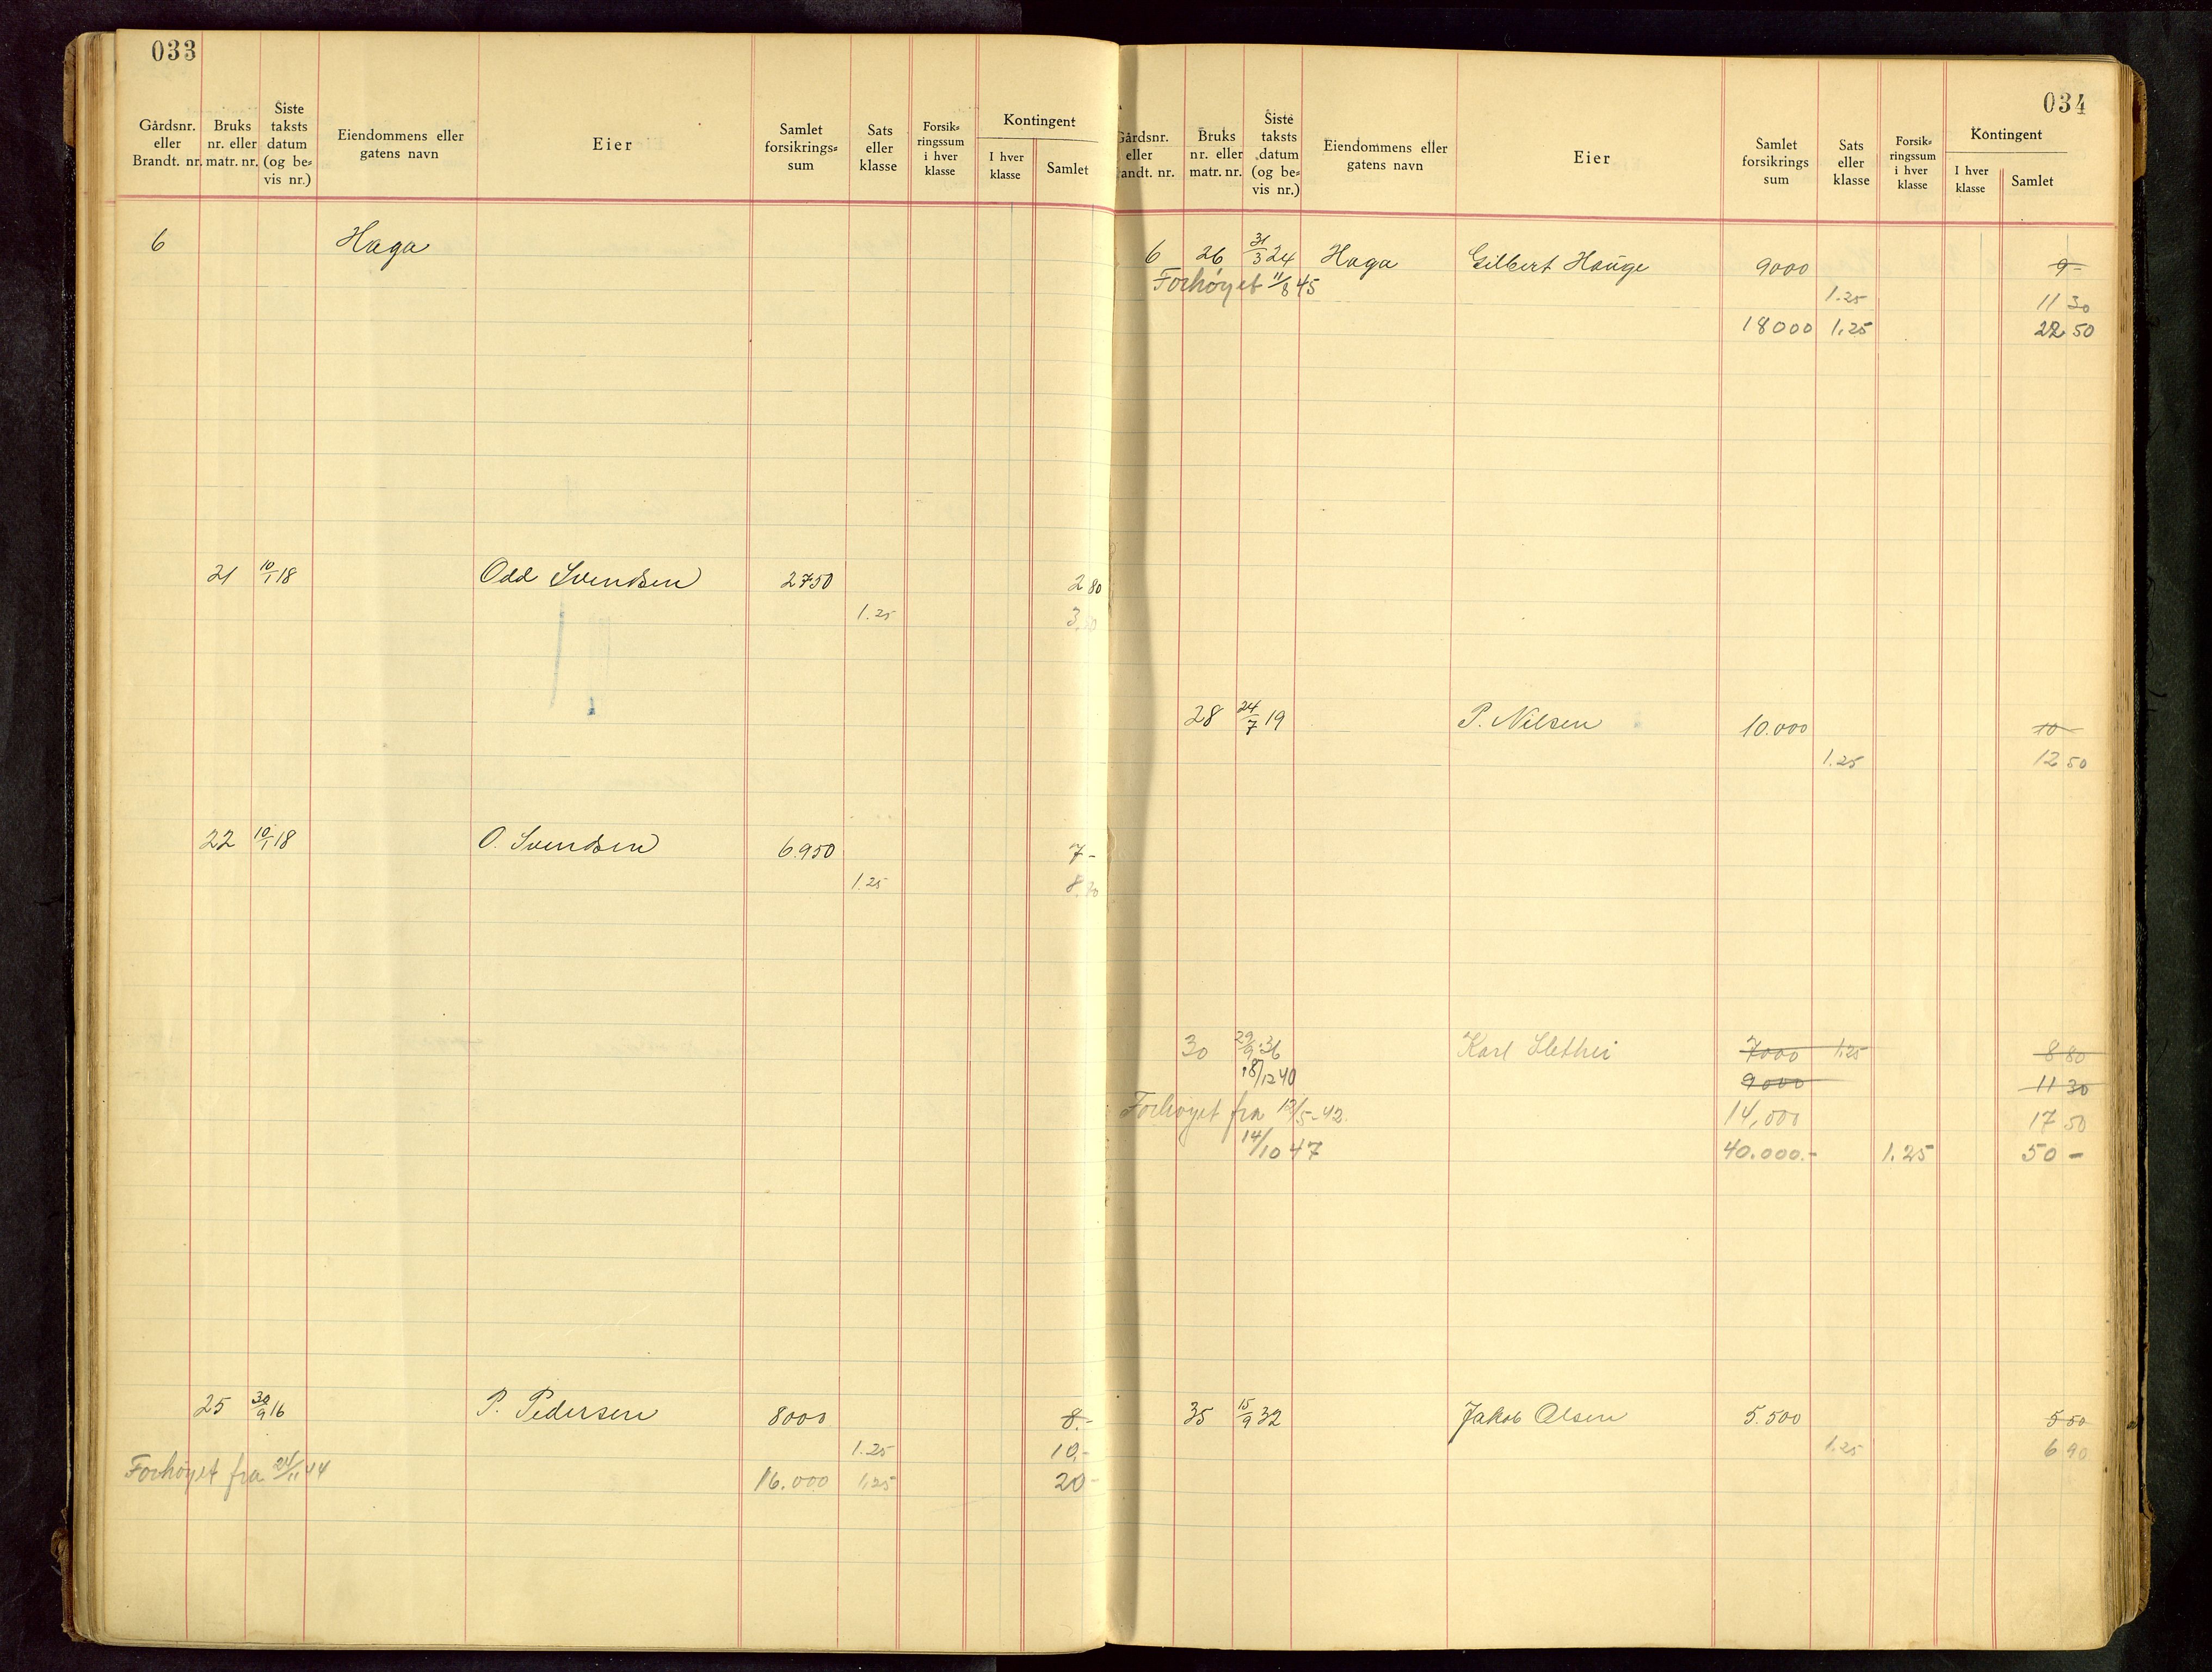 033
Gårdsnr. eller Brandt. nr. Bruks nr. eller matr. nr. Siste taksts datum (og be= vis nr.) Eiendommens eller gatens navn Eier Samlet forsikrings= sum Sats eller klasse Forsik= ringssum i hver klasse Kontingent I hver klasse Samlet
6 Haga
21 10/1 18 Odd Svendsen 2750 2 80
1.25
22 10/1 18 O. Svendsen 6.950 7-
1.25
25 30/9 16 P. Pedersen 8000 8.-
1.25 10,-
Forhøyet fra 24/11 44 16.000 1,25 20-
034
Gårdsnr. eller andt. nr. Bruks nr. eller matr. nr. Siste taksts datum (og be= vis nr.) Eiendommens eller gatens navn Eier Samlet forsikrings sum Sats eller klasse Forsik= ringssum i hver klasse Kontingent I hver klasse Samlet
6 26 31/3 24 Haga Gilbert Hauge 9000 9-
Forhøyet 11/8 45
1.25 11 30
18000 1,25 22 50
28 24/7 19 P. Nilsen 10.000 10-
1.25 12 50
30 29/9 36 Karl Slethei 7000 1.25 8 80
18/12 40 9000 11 30
Forhøyet fra 12/5-42. 14,000 17 50
14/10 47 40.000.- 1.25 50 -
35 15/9 32 Jakob Olsen 5.500 5 50
1.25 6 90